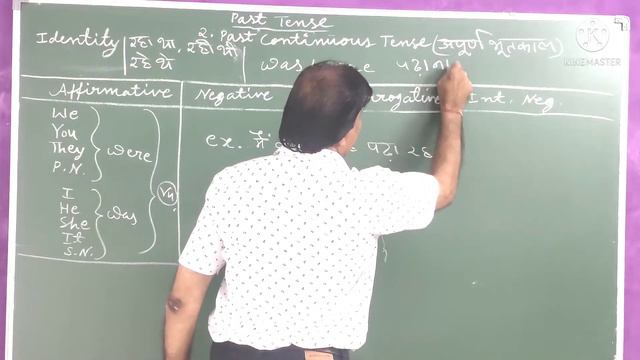 Past Tense
Identity रहा था, रही थी 2. Past Continuous Tense (अपूर्ण भूतकाल)
रहे थे was
KINEMASTER
Affirmative Negative Int. Neg.
We
You
They
P.N.
were
I
He
She
It
S.N.
was
ex. मैं पढ़ा रहा